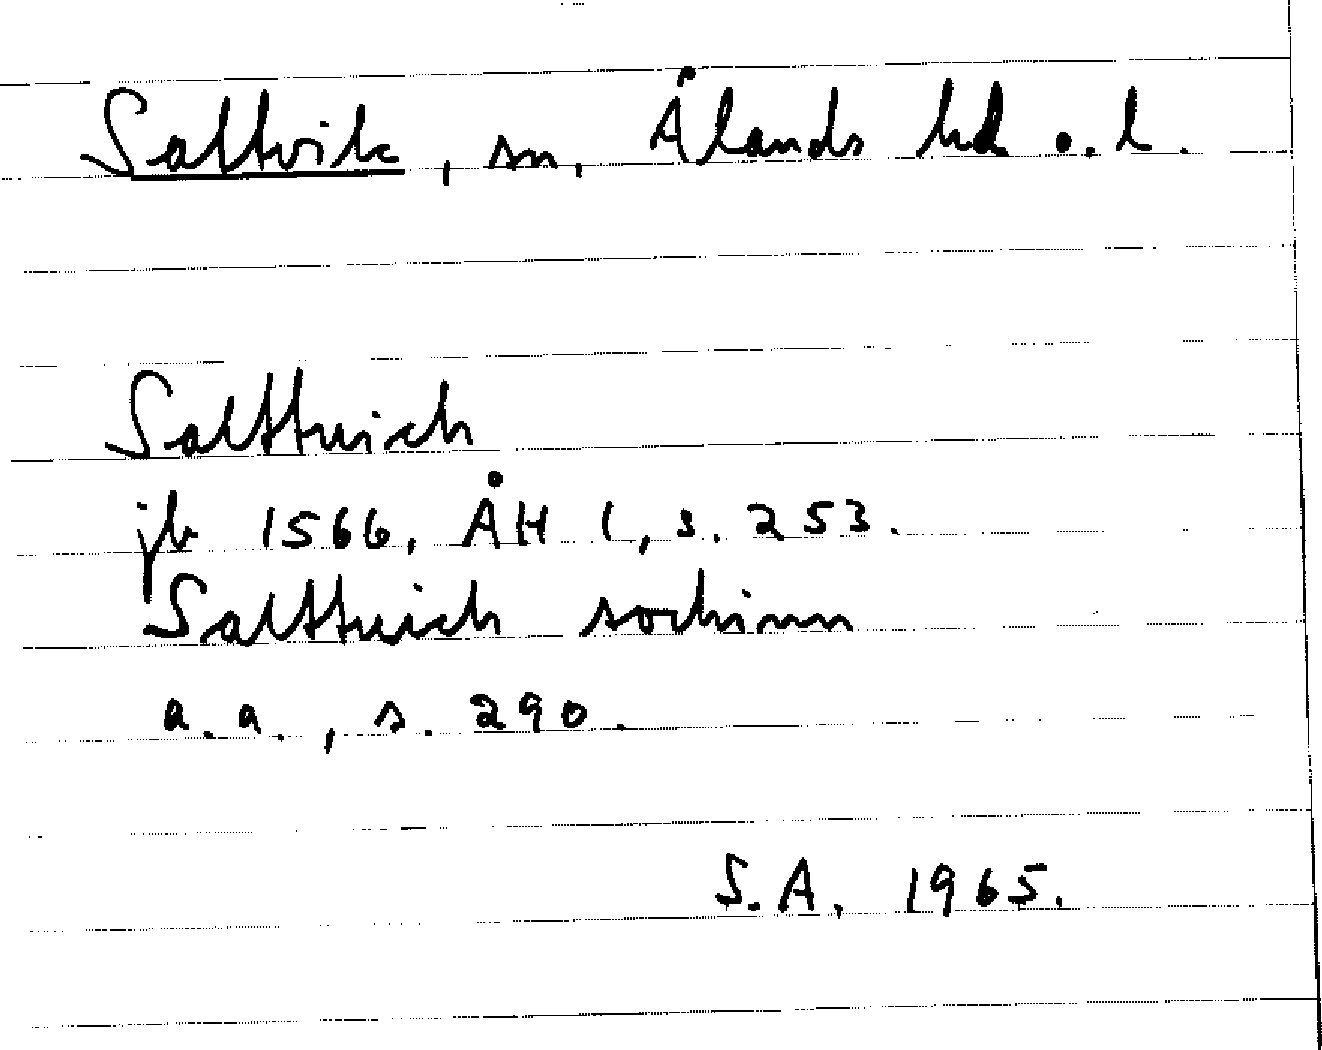 Saltvik, sn, Ålands hd o. l.
Salttuich
jb 1566, ÅH 1, s. 253.
Salttuich sochinn
a.a., s. 290.
S.A. 1965.